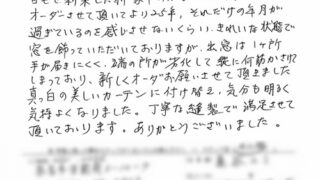 オーダさせて頂いてより25年、それだけの年月が
過ぎているのを感じさせないくらい、きれいな状態で
窓を飾っていただいておりますが、出窓は1ヶ所
手が届きにくく、3痛の所が劣化して縦に何筋かさけて
しまっており、新しくオーダお願いさせて頂きました
真っ白の美しいカーテンに付け替え、気分も明るく
気持よくなりました。丁寧な縫製で満足させて
頂いております。ありがとうございました。